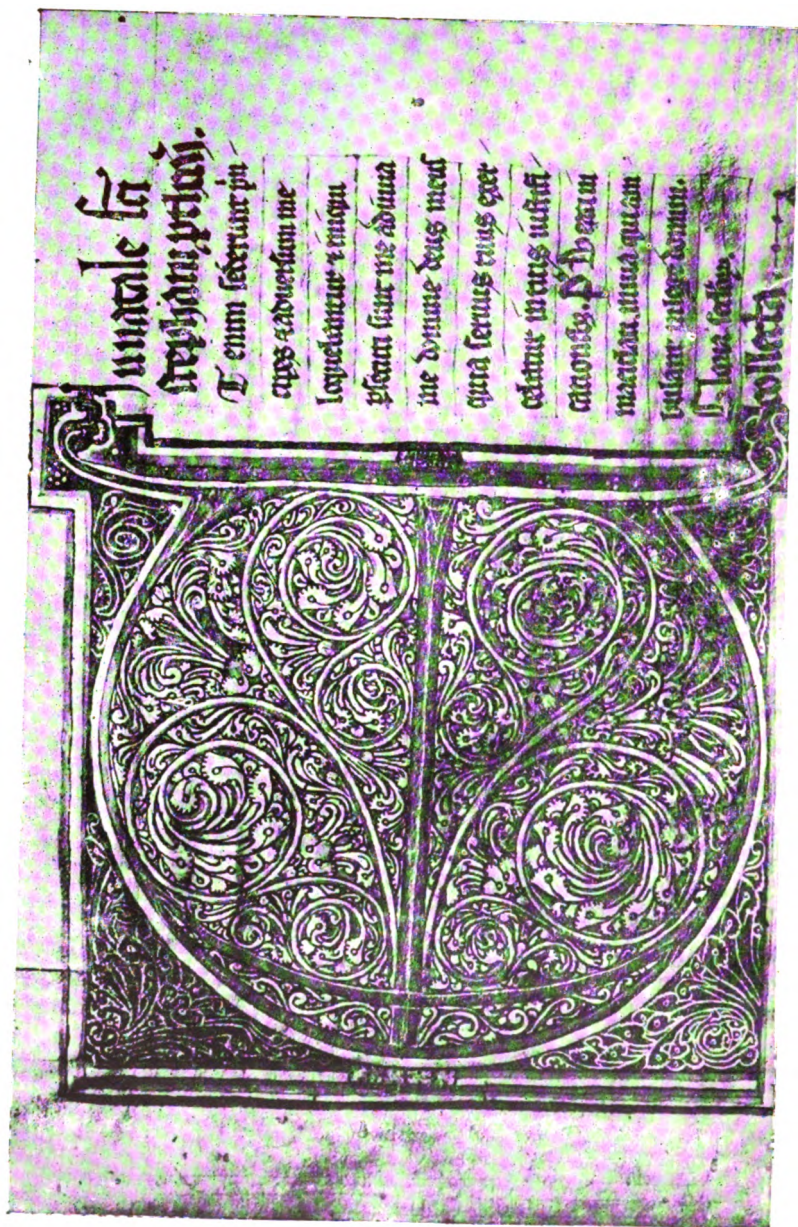 innatale sci
stephani
T enim sederunt prin
cipes & adversum me
loquebantur & iniqui
psecuti sunt me adiuva
me domine deus meus
quia servus tuus exer
cebatur in tuis iustifi
cationib; P Beati in
maculati in via qui am
bulant in lege domini.
Collecta